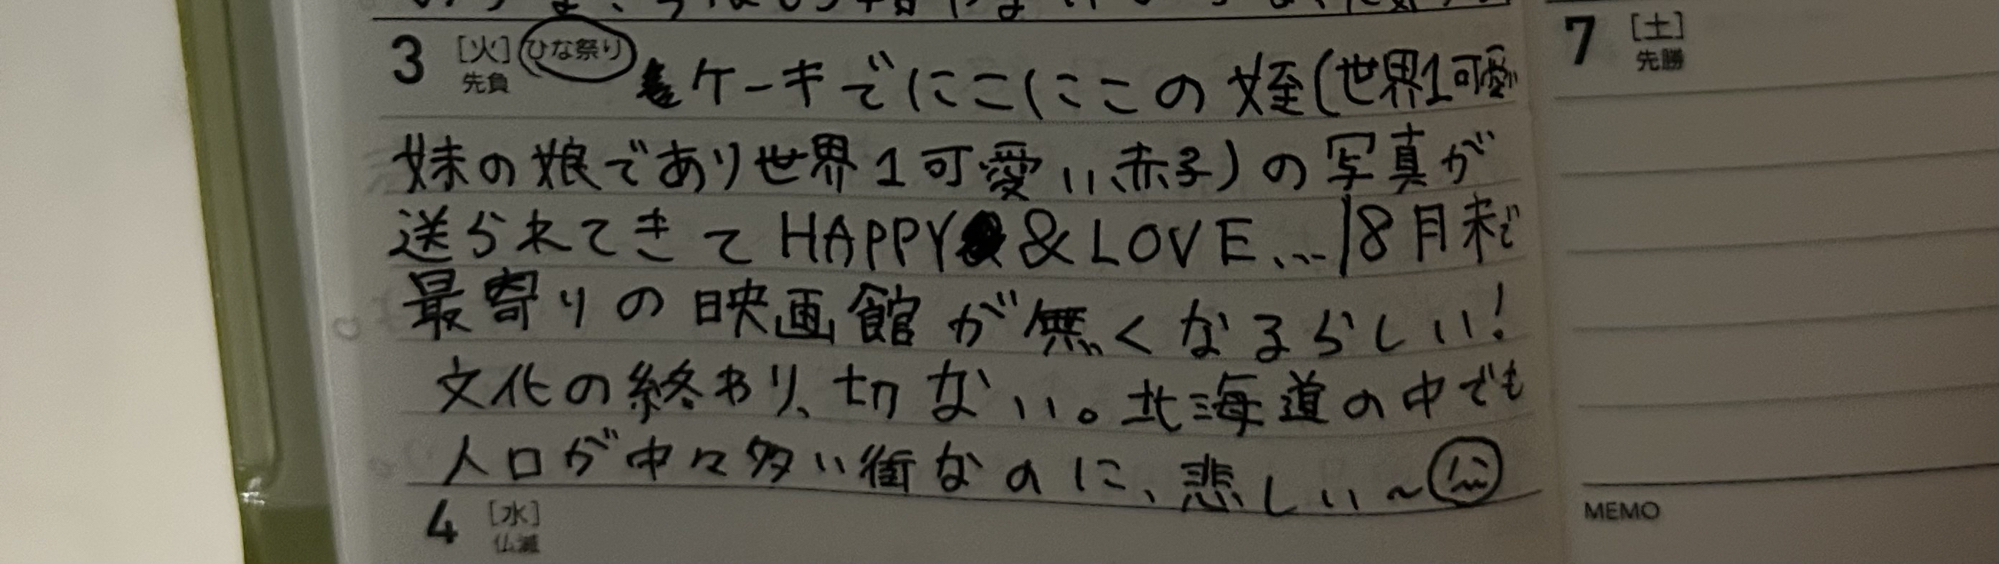 3 [火] ひな祭り ケーキでにこにこの姪(世界1可愛い
先負
妹の娘であり世界1可愛い赤子)の写真が
送られてきてHAPPY&LOVE…/8月末で
最寄りの映画館が無くなるらしい!
文化の終わり、切ない。北海道の中でも
人口が中々多い街なのに、悲しい~
4 [水]
仏滅
7 [土]
先勝
MEMO